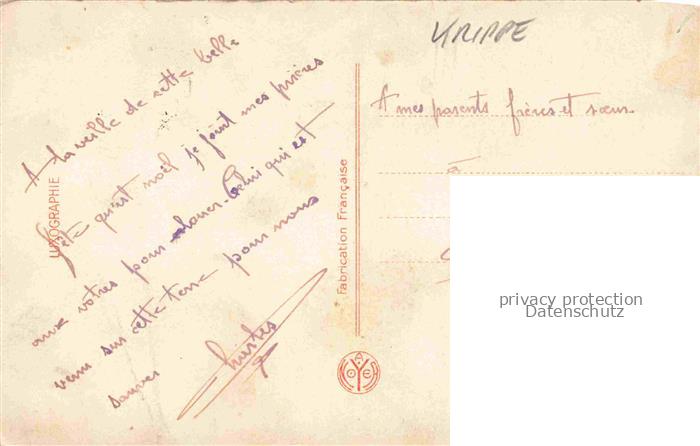 KRIPPE
A la veille de cette belle
fête qu'est noël je joint mes prières
aux vôtres pour louer Celui qui est
venu sur cette terre pour nous
sauver
A mes parents frères et sœur
à
LUXOGRAPHIE
Fabrication Française
privacy protection
Datenschutz